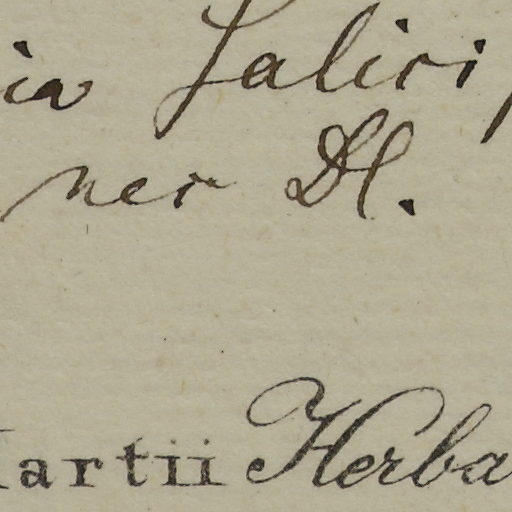 ia Salici
ner Dl.
Martii Herba